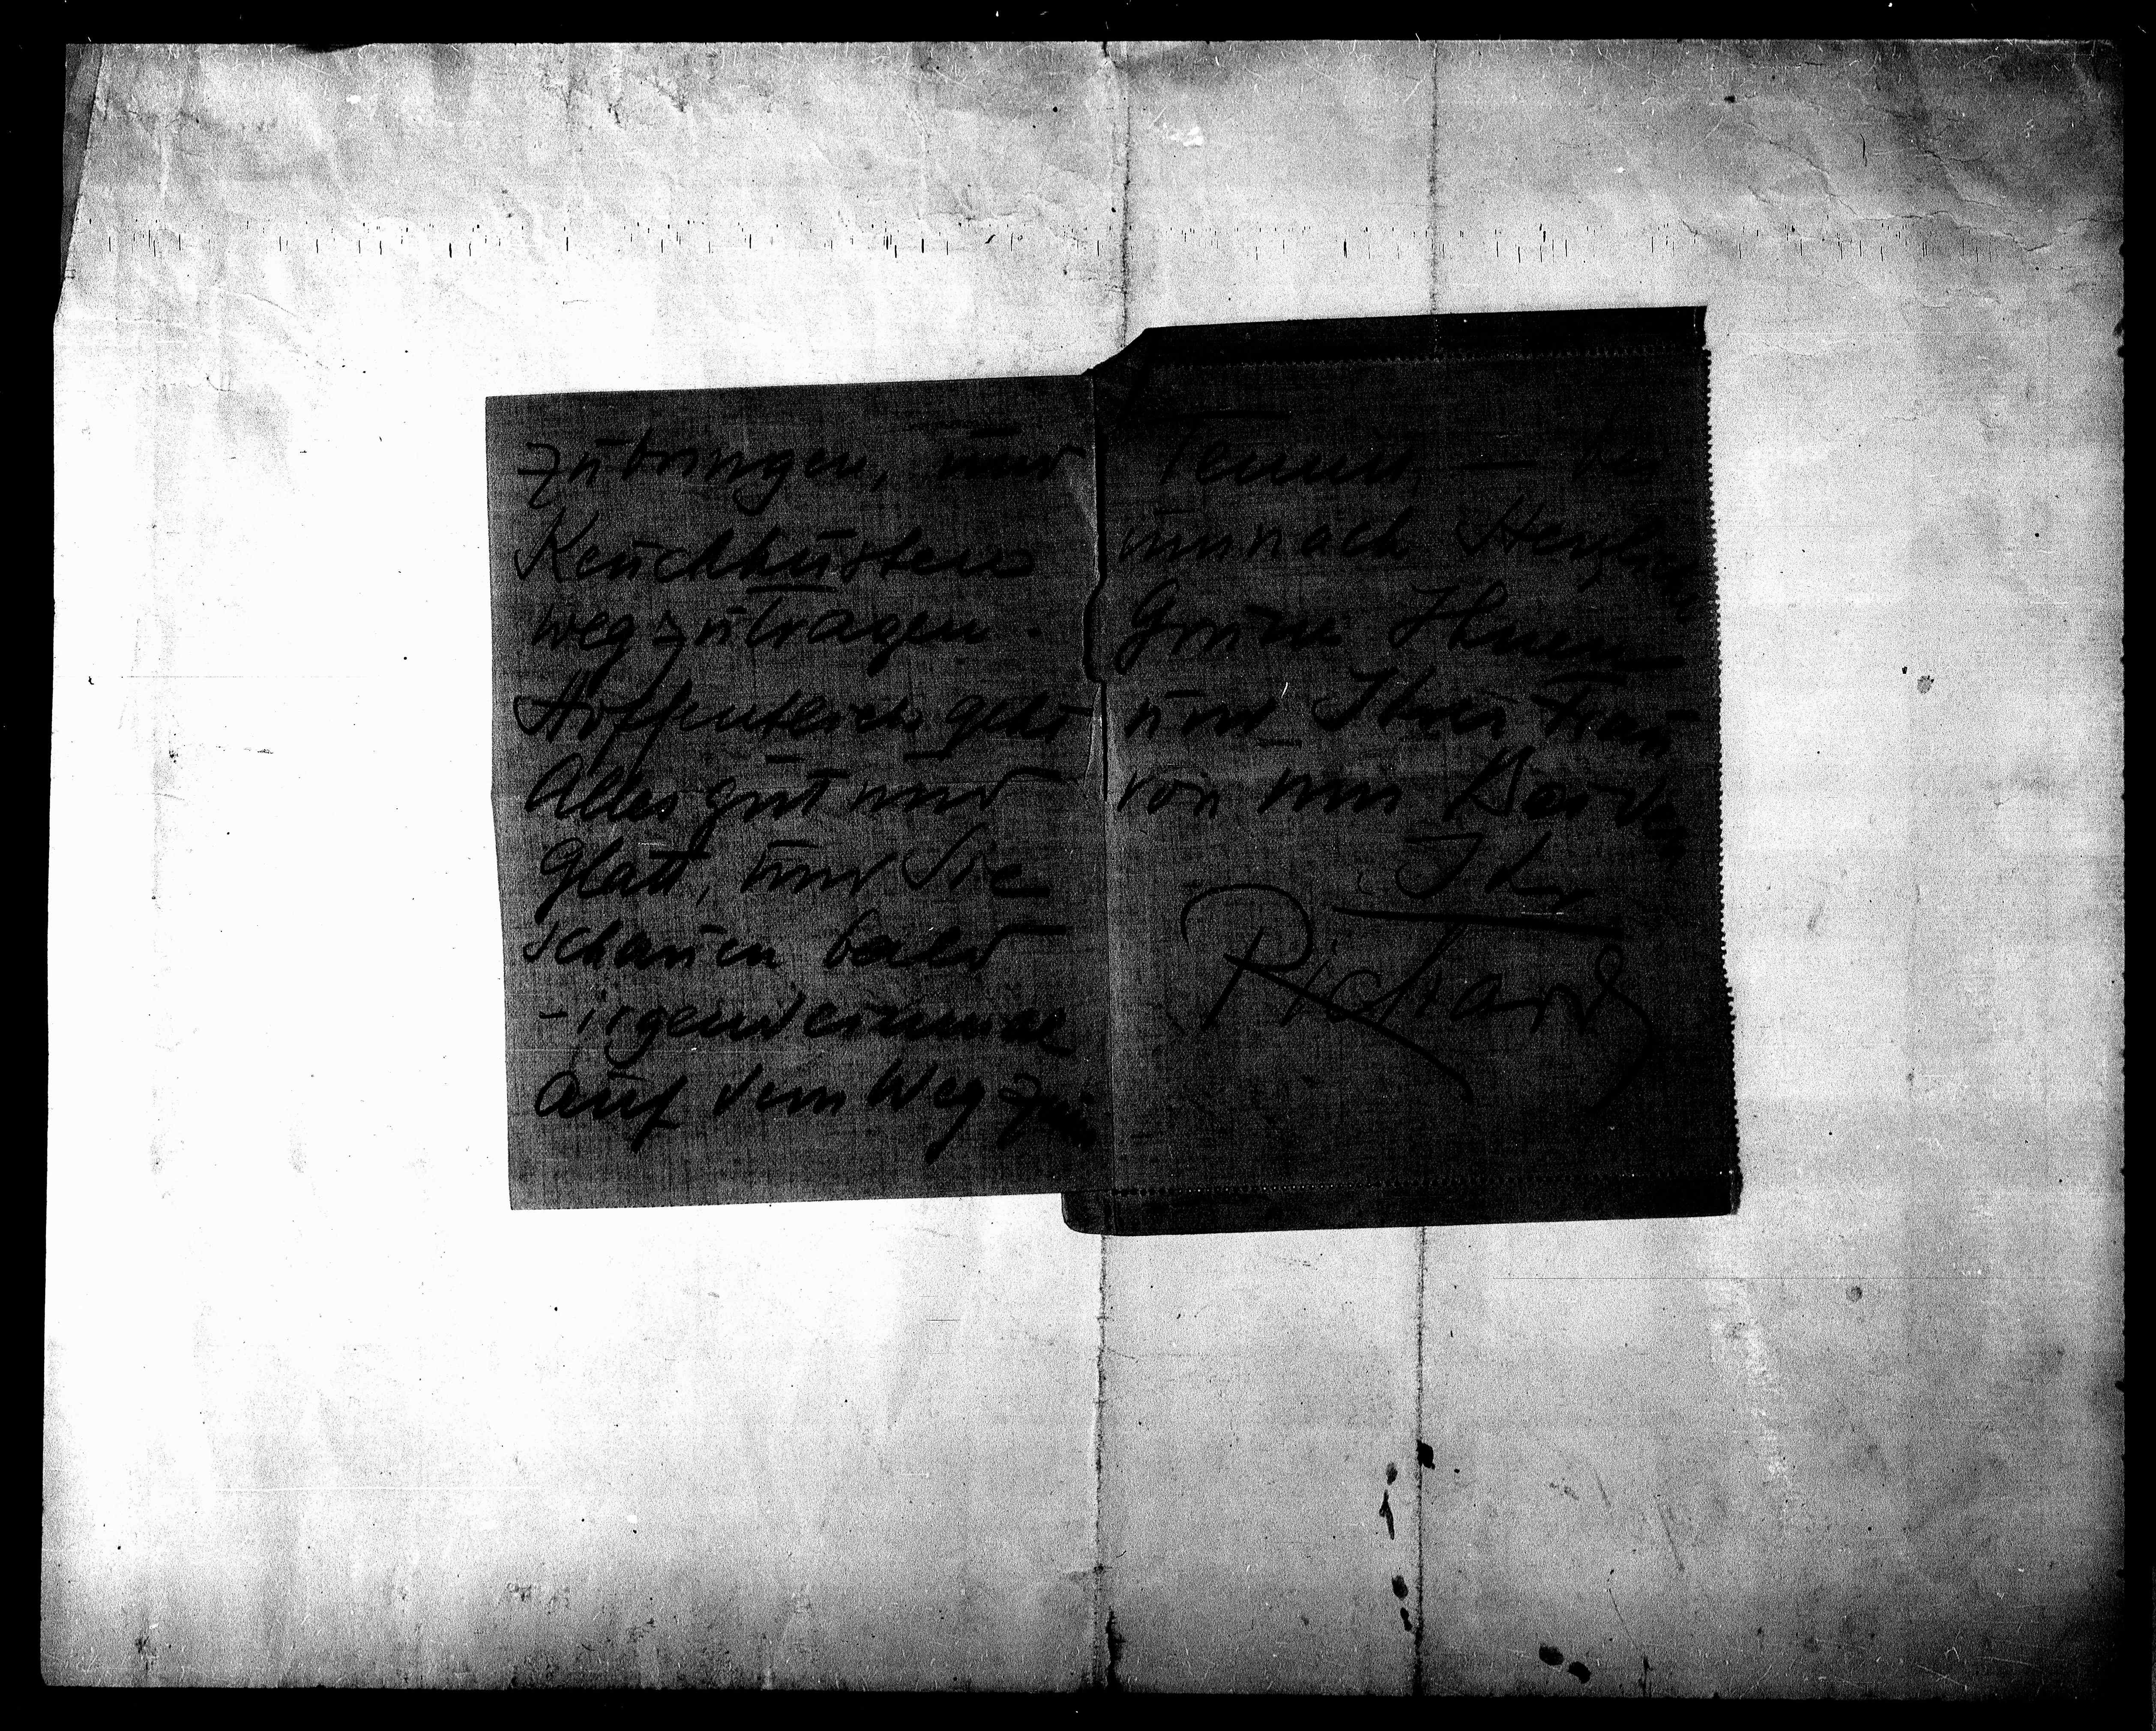 zubringen, und
Keuchhusten
wegzutragen.
Hoffentlich geht
Alles gut und
Glatt, und Sie
schauen bald
- irgendeinmal
auf dem Weg zum
Tennis, — bei
uns nach. Herzliche
Grüsse Ihnen
und Ihrer Frau
von uns Beiden
Ihr
Richard